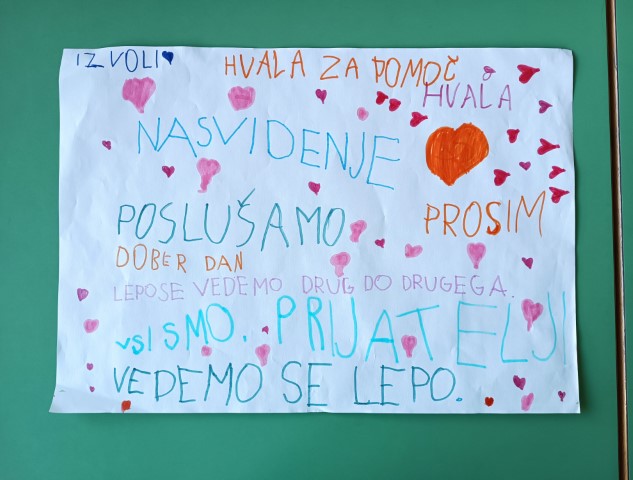 IZVOLI
HVALA ZA POMOČ
HVALA
NASVIDENJE
POSLUŠAMO
PROSIM
DOBER DAN
LEPO SE VEDEMO DRUG DO DRUGEGA.
VSI SMO. PRIJATELJI
VEDEMO SE LEPO.